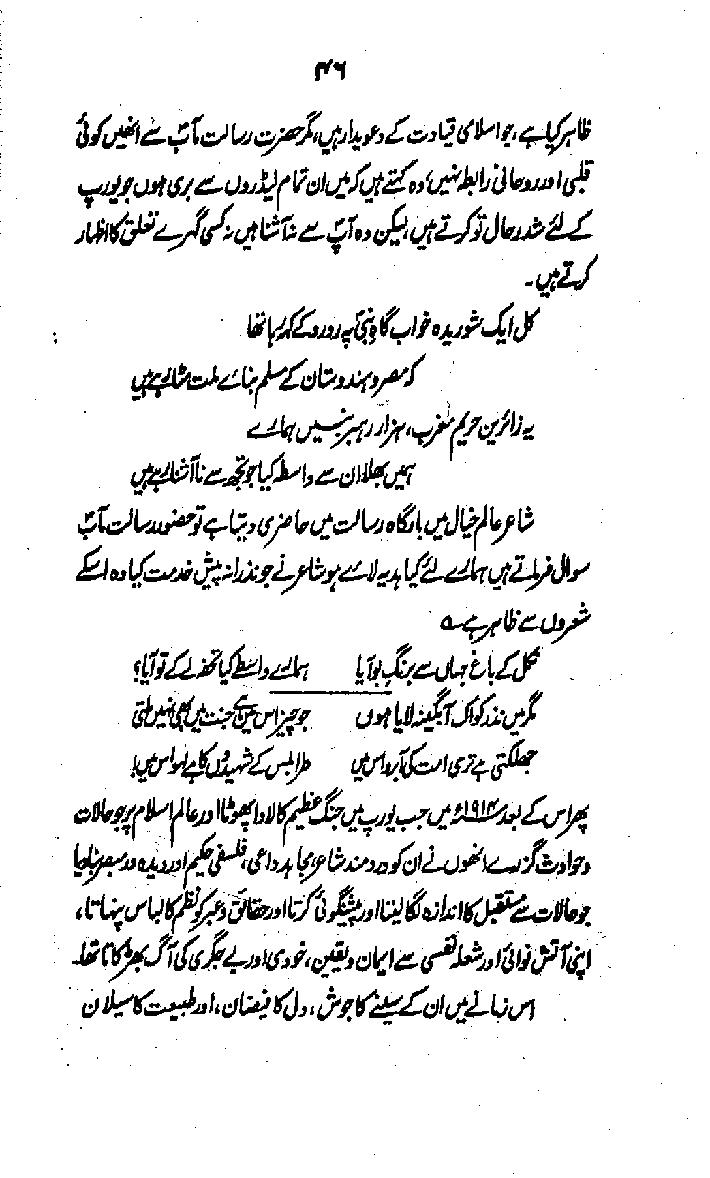 ۴۶
ظاہر کیا ہے، جو اسلامی قیادت کے دعویدار ہیں، مگر حضرت رسالت مآبؐ سے انھیں کوئی
قلبی اور روحانی رابطہ نہیں، وہ کہتے ہیں کہ میں ان تمام لیڈروں سے بری ہوں جو یورپ
کے لئے شد رحال تو کرتے ہیں، لیکن وہ آپؐ سے نہ آشنا ہیں نہ کسی گہرے تعلق کا اظہار
کرتے ہیں۔
کل ایک شوریدہ خواب گاہِ نبیؐ پہ رو رو کے کہہ رہا تھا
کہ مصر و ہندوستان کے مسلم بنائے ملت مٹا رہے ہیں
یہ زائرین حریم مغرب، ہزار رہبر بنیں ہمارے
ہمیں بھلا ان سے واسطہ کیا جو تجھ سے ناآشنا رہے ہیں
شاعر عالم خیال میں بارگاہ رسالت میں حاضری دیتا ہے تو حضور رسالت مآبؐ
سوال فرماتے ہیں ہمارے لئے کیا ہدیہ لائے ہو شاعر نے جو نذرانہ پیش خدمت کیا وہ اسکے
شعروں سے ظاہر ہے ؎
نکل کے باغ جہاں سے برنگ بو آیا ہمارے واسطے کیا تحفہ لے کے تو آیا؟
مگر میں نذر کو اک آبگینہ لایا ہوں جو چیز اس میں ہے جنت میں بھی نہیں ملتی
جھلکتی ہے تری امت کی آبرو اس میں طرابلس کے شہیدوں کا ہے لہو اس میں!
پھر اس کے بعد ۱۹۱۴ء میں جب یورپ میں جنگ عظیم کا لاوا پھوٹا اور عالم اسلام پر جو حالات
و حوادث گزرے انھوں نے ان کو دردمند شاعر، مجاہد داعی، فلسفی حکیم اور دیدہ ور مبصر بنا دیا
جو حالات سے مستقبل کا اندازہ لگا لیتا اور پیشگوئی کرتا اور حقائق و عبر کو نظم کا لباس پہناتا،
اپنی آتش نوائی اور شعلہ نفسی سے ایمان و یقین، خودی اور بے جگری کی آگ بھڑکاتا تھا۔
اس زمانے میں ان کے سینے کا جوش، دل کا فیضان، اور طبیعت کا سیلان